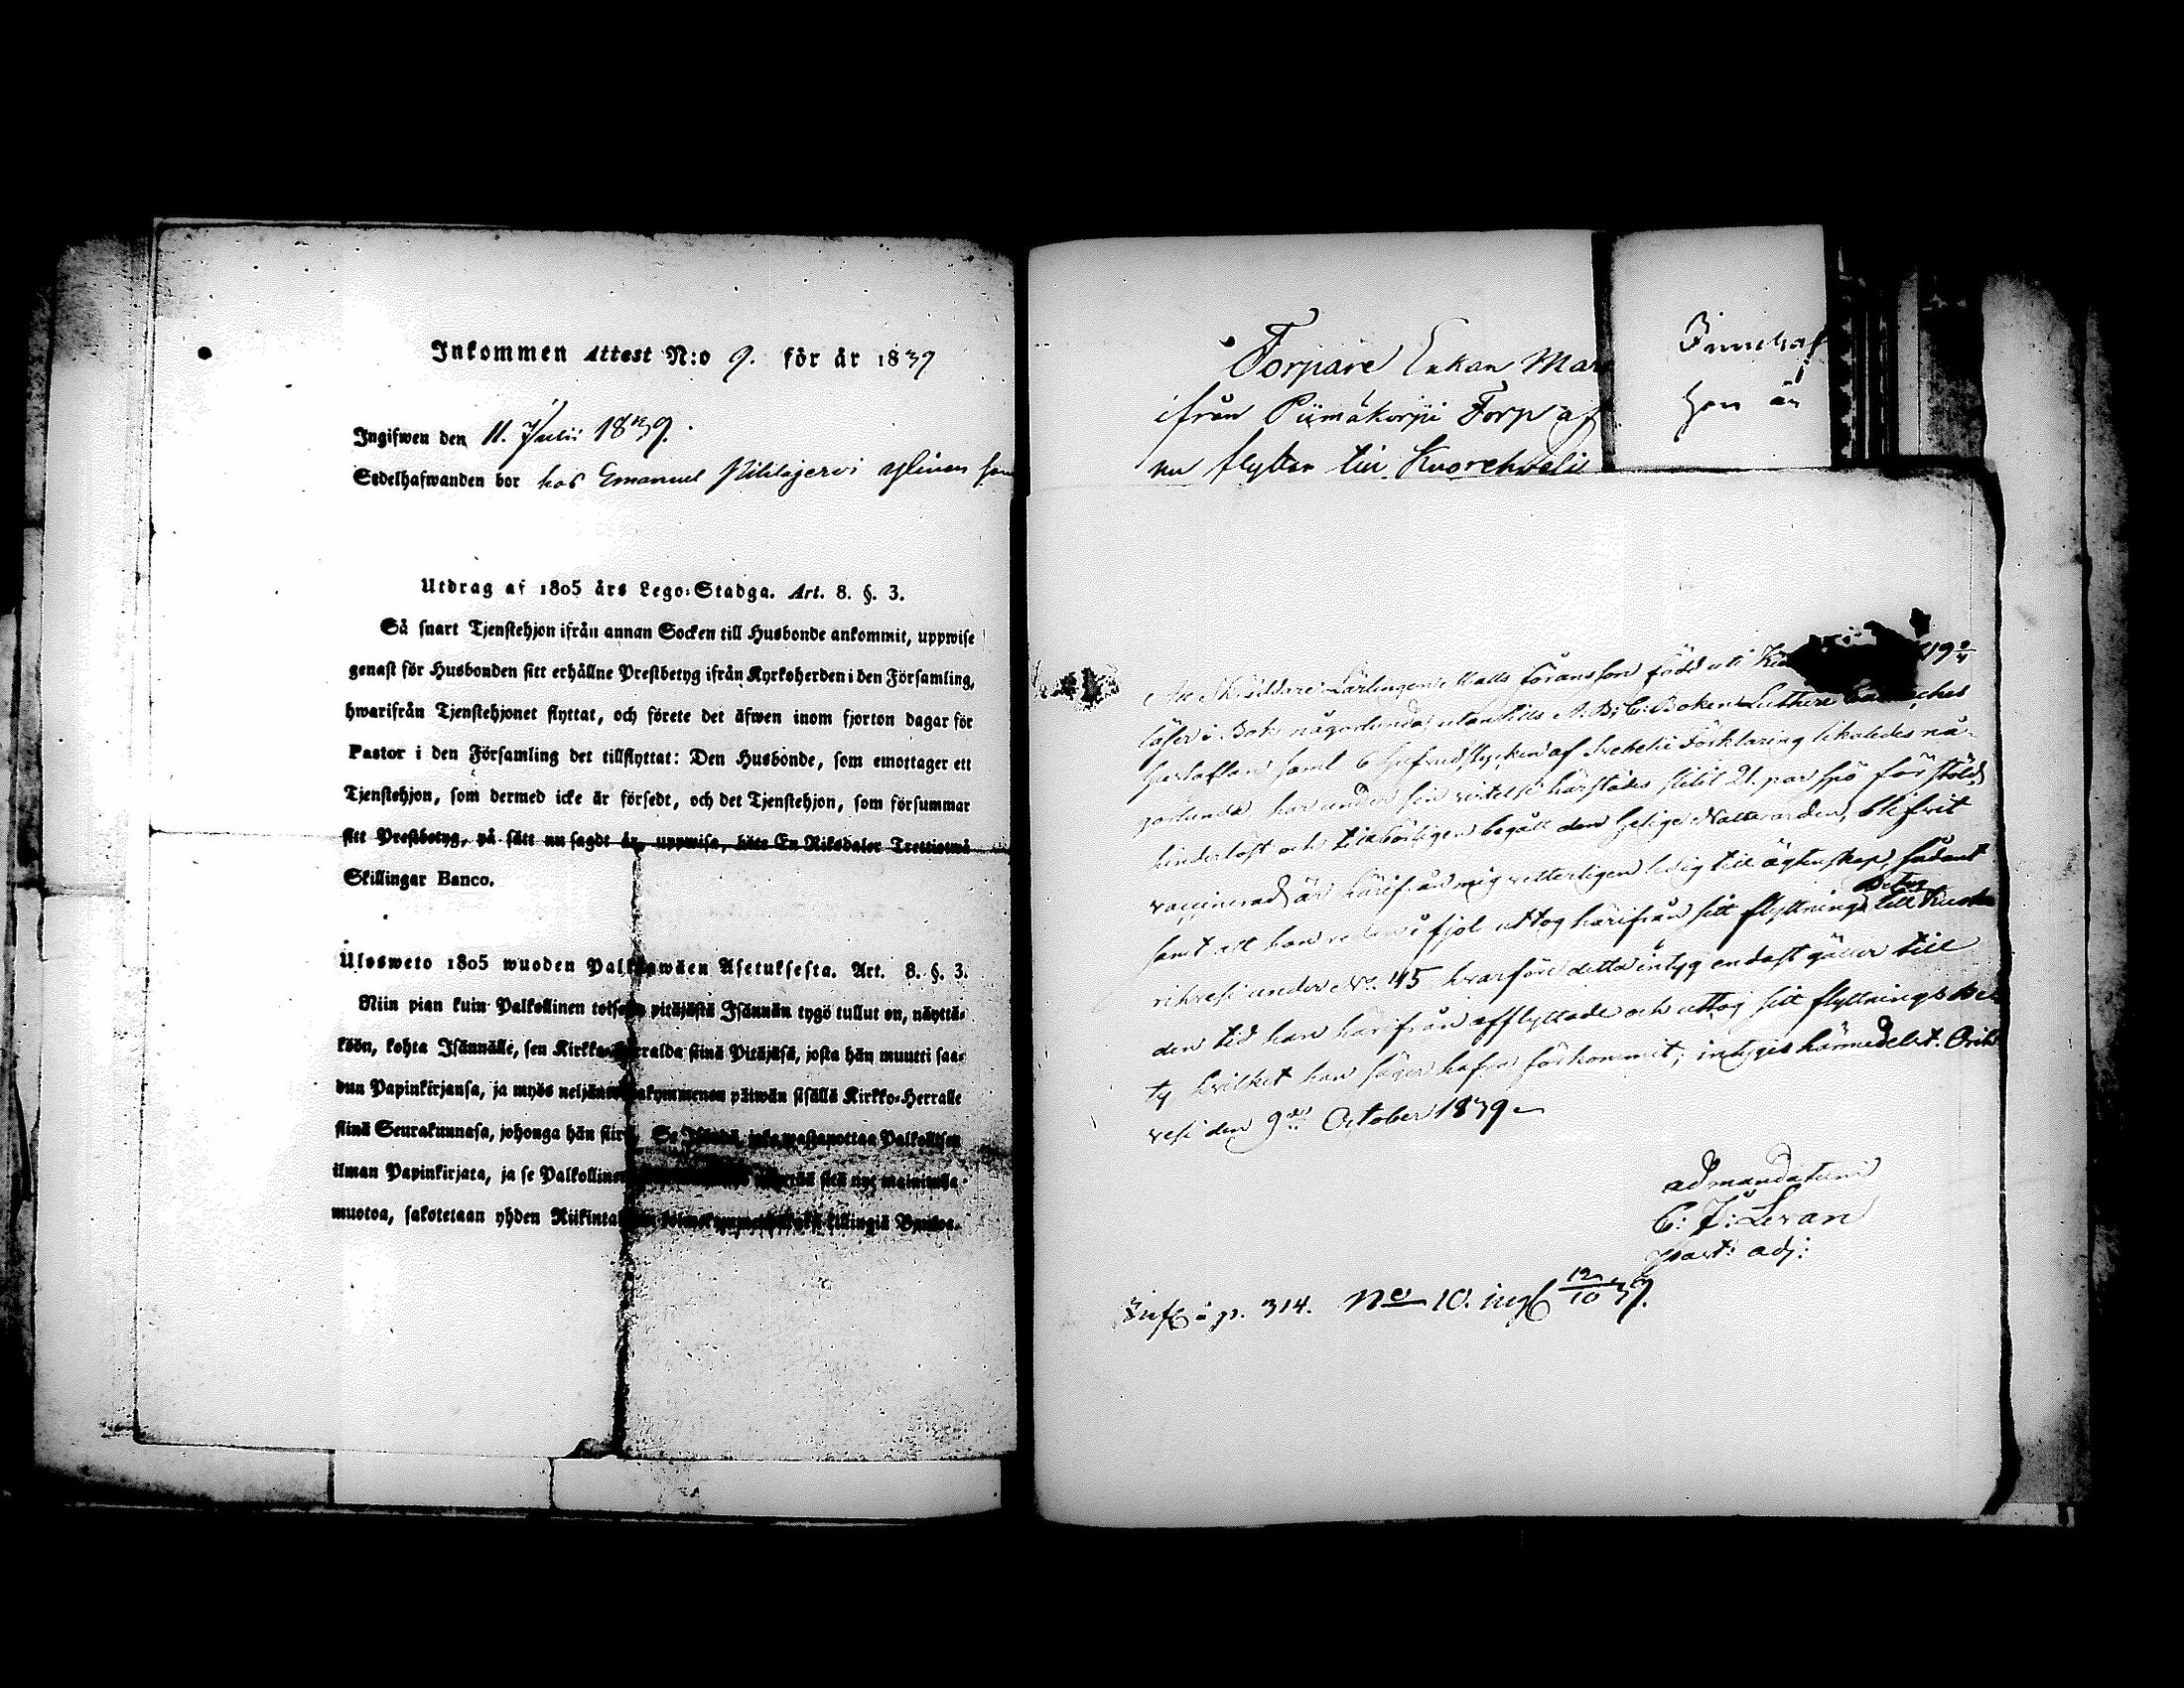 Inkommen Attest N:o 9. för år 1839
Ingifwen den 11. Julii 1839.
Sedelhafwanden bor hos Emanuel Ylinen
Utdrag af 1805 års Lego-Stadga. Art. 8. §. 3.
Så snart Tjenstehjon ifrån annan Socken till Husbonde ankommit, uppwise
genast för Husbonden sitt erhållne Prestbetyg ifrån Kyrkoherden i den Församling,
hwarifrån Tjenstehjonet flyttat, och förete det äfwen inom fjorton dagar för
Pastor i den Församling det tillflyttat: Den Husbonde, som emottager ett
Tjenstehjon, som dermed icke är försedt, och det Tjenstehjon, som försummar
sitt Prestbetyg, på sätt nu sagdt är, uppwisa, böte En Riksdaler Trettiotwå
Skillingar Banco.
Ulosweto 1805 wuoden Palkkawäen Asetuksesta. Art. 8. §. 3.
Niin pian kuin Palkollinen toisesta pitäjästä Isännän tygö tullut on, näyttä-
köön, kohta Isännälle, sen Kirkko-Herralda siinä Pitäjäsä, josta hän muutti saa-
dun Papinkirjansa, ja myös neljäntoistakymmenen päiwän sisällä Kirkko-Herralle
siinä Seurakunnasa, johonga hän siirsi. Se Isändä, joka wastanottaa Palkollisen
ilman Papinkirjata, ja se Palkollinen sitä nyt mainitulla
muotoa, sakotetaan yhden Riikintalarin killingiä Bankoa.
Torpare Enkan Mar
ifrån Piimäkorpi Torp af
nu flyttar till Kuorehveli
Hon är
Att Skräddare Lärlingen Matts Göransson född uti
läser i Bok någorlunda, utantill A:B:C: Boken Lutheri
hustaflan samt 6 hufvudstycken af Svebelii Förklaring likaledes nå-
gorlunda, har under sin vistelse härstädes slitit 21. par spö för stöld,
hinderlöst och tillbörligen begått den helige Nattvarden, blifvit
vaccinerad, är härifrån mig vetterligen ledig till ägtenskap, sådant
samt att han redan i fjol uttog härifrån sitt flyttnings Betyg till
rihvesi under No. 45 hvarföre detta intyg endast gäller till
den tid han härifrån afflyttade och uttog sitt flyttnings Be-
tyg hvilket han säger hafva förkommit; intygis härmedelst. Orih-
vesi den 9de October 1839
ad mandatum
C: J: Levan
past: adj:
Infö å p. 314. No 10. ingf 12/10 39.